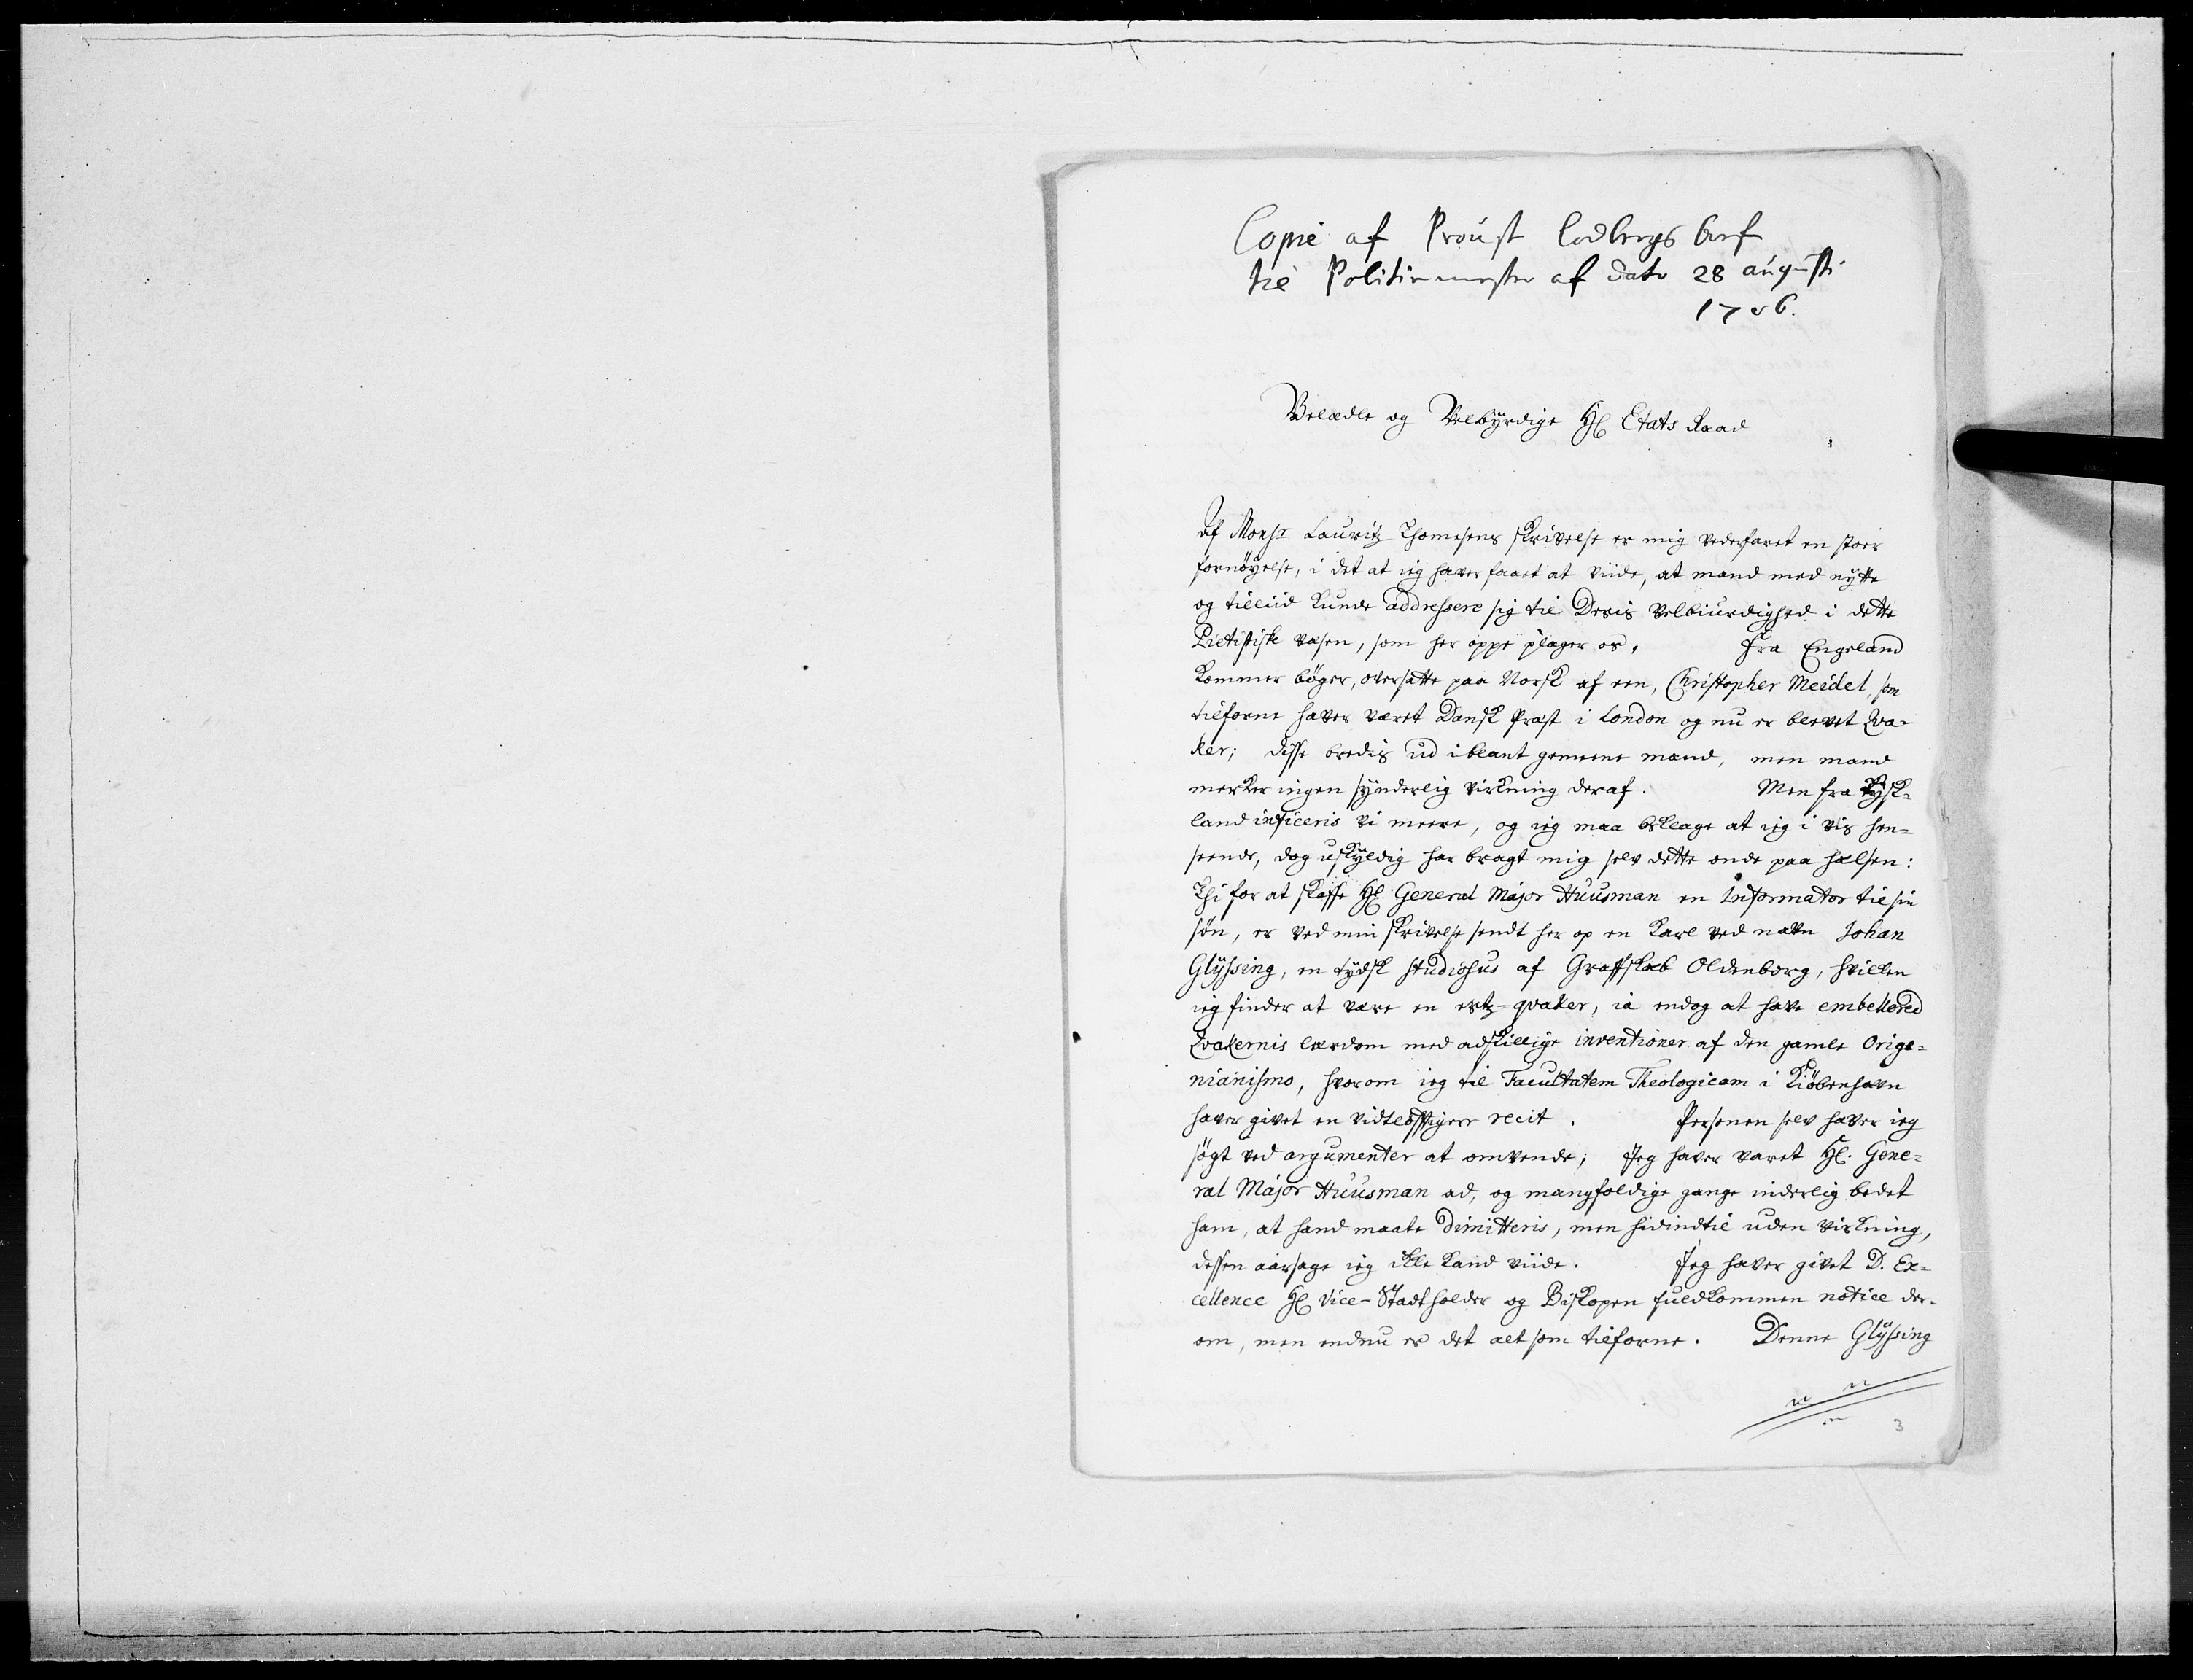 Copie af Proust Lodbergs bref
til Politiemester af dato 28 augusti
1706.
Velædle og Velbyrdige Hr Etats Raad
Af Monsr Lauritz Thomesens skrivelse er mig vederfaret en stoer
fornöyelse, i det at ieg haver faaet at viide, at mand med nytte
og tilliid kunde addressere sig til Deris Velbiurdighed i dette
Pietistiske væsen, som her oppe plager os. Fra Engeland
kommer böger, oversatte paa Norsk af een, Christopher Meidel, som
tilforne haver været Dansk Præst i London og nu er blevet Qva-
ker; disse bredis ud iblant gemeene mand, men mand
merker ingen synderlig virkning deraf. Men fra Tysk-
land inficeris vi meere, og ieg maa beklage at ieg i vis hen-
seende, dog uskyldig har bragt mig selv dette onde paa halsen:
Thi for at skaffe Hr. General Major Huusman en Informator til sin
sön, er ved min skrivelse sendt her op en karl ved navn Johan
Glÿssing, en tydsk studiosus af Graffskab Oldenborg, hvilken
ieg finder at være en ertz-qvaker, ia endog at have embellered
Qvakernis lærdom med adskillige inventioner af den gamle Orige-
nianismo, hvorom ieg til Facultatem Theologicam i Kiöbenhavn
haver givet en vidtlöfftigere recit. Personen selv haver ieg
sögt ved argumenter at omvende; Jeg haver varet Hr. Gene-
ral Major Huusman ad, og mangfoldige gange inderlig bedet
ham, at hand maate dimitteris, men hidindtil uden virkning,
dessen aarsage ieg ikke kand viide. Jeg haver givet D. Ex-
cellence Hr Vice-Stadtholder og Biskopen fuldkommen notice der-
om, men endnu er det alt som tilforne. Denne Glÿssing
3